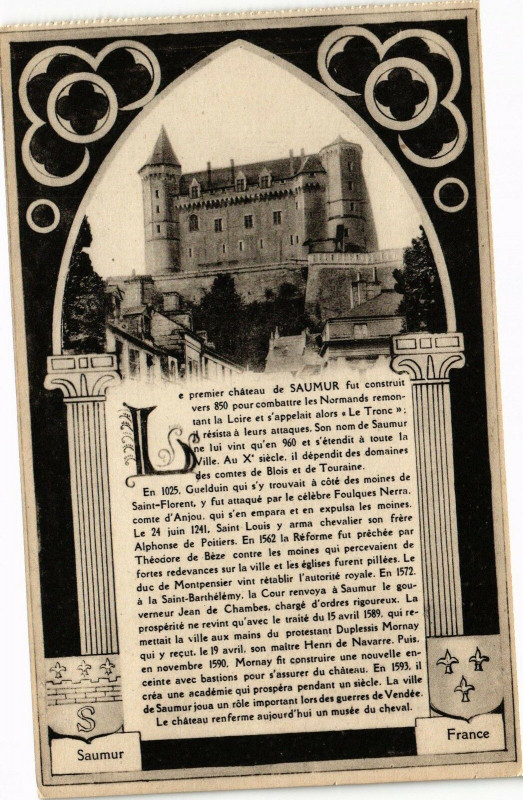 Le premier château de SAUMUR fut construit
vers 850 pour combattre les Normands remon-
tant la Loire et s'appelait alors « Le Tronc » ;
il résista à leurs attaques. Son nom de Saumur
ne lui vint qu'en 960 et s'étendit à toute la
Ville. Au Xe siècle, il dépendit des domaines
des comtes de Blois et de Touraine.
En 1025, Guelduin qui s'y trouvait à côté des moines de
Saint-Florent, y fut attaqué par le célèbre Foulques Nerra,
comte d'Anjou, qui s'en empara et en expulsa les moines.
Le 24 juin 1241, Saint Louis y arma chevalier son frère
Alphonse de Poitiers. En 1562 la Réforme fut prêchée par
Théodore de Bèze contre les moines qui percevaient de
fortes redevances sur la ville et les églises furent pillées. Le
duc de Montpensier vint rétablir l'autorité royale. En 1572,
à la Saint-Barthélémy, la Cour renvoya à Saumur le gou-
verneur Jean de Chambes, chargé d'ordres rigoureux. La
prospérité ne revint qu'avec le traité du 15 avril 1589, qui re-
mettait la ville aux mains du protestant Duplessis Mornay
qui y reçut, le 19 avril, son maître Henri de Navarre. Puis,
en novembre 1590, Mornay fit construire une nouvelle en-
ceinte avec bastions pour s'assurer du château. En 1593, il
créa une académie qui prospéra pendant un siècle. La ville
de Saumur joua un rôle important lors des guerres de Vendée.
Le château renferme aujourd'hui un musée du cheval.
S
Saumur
France